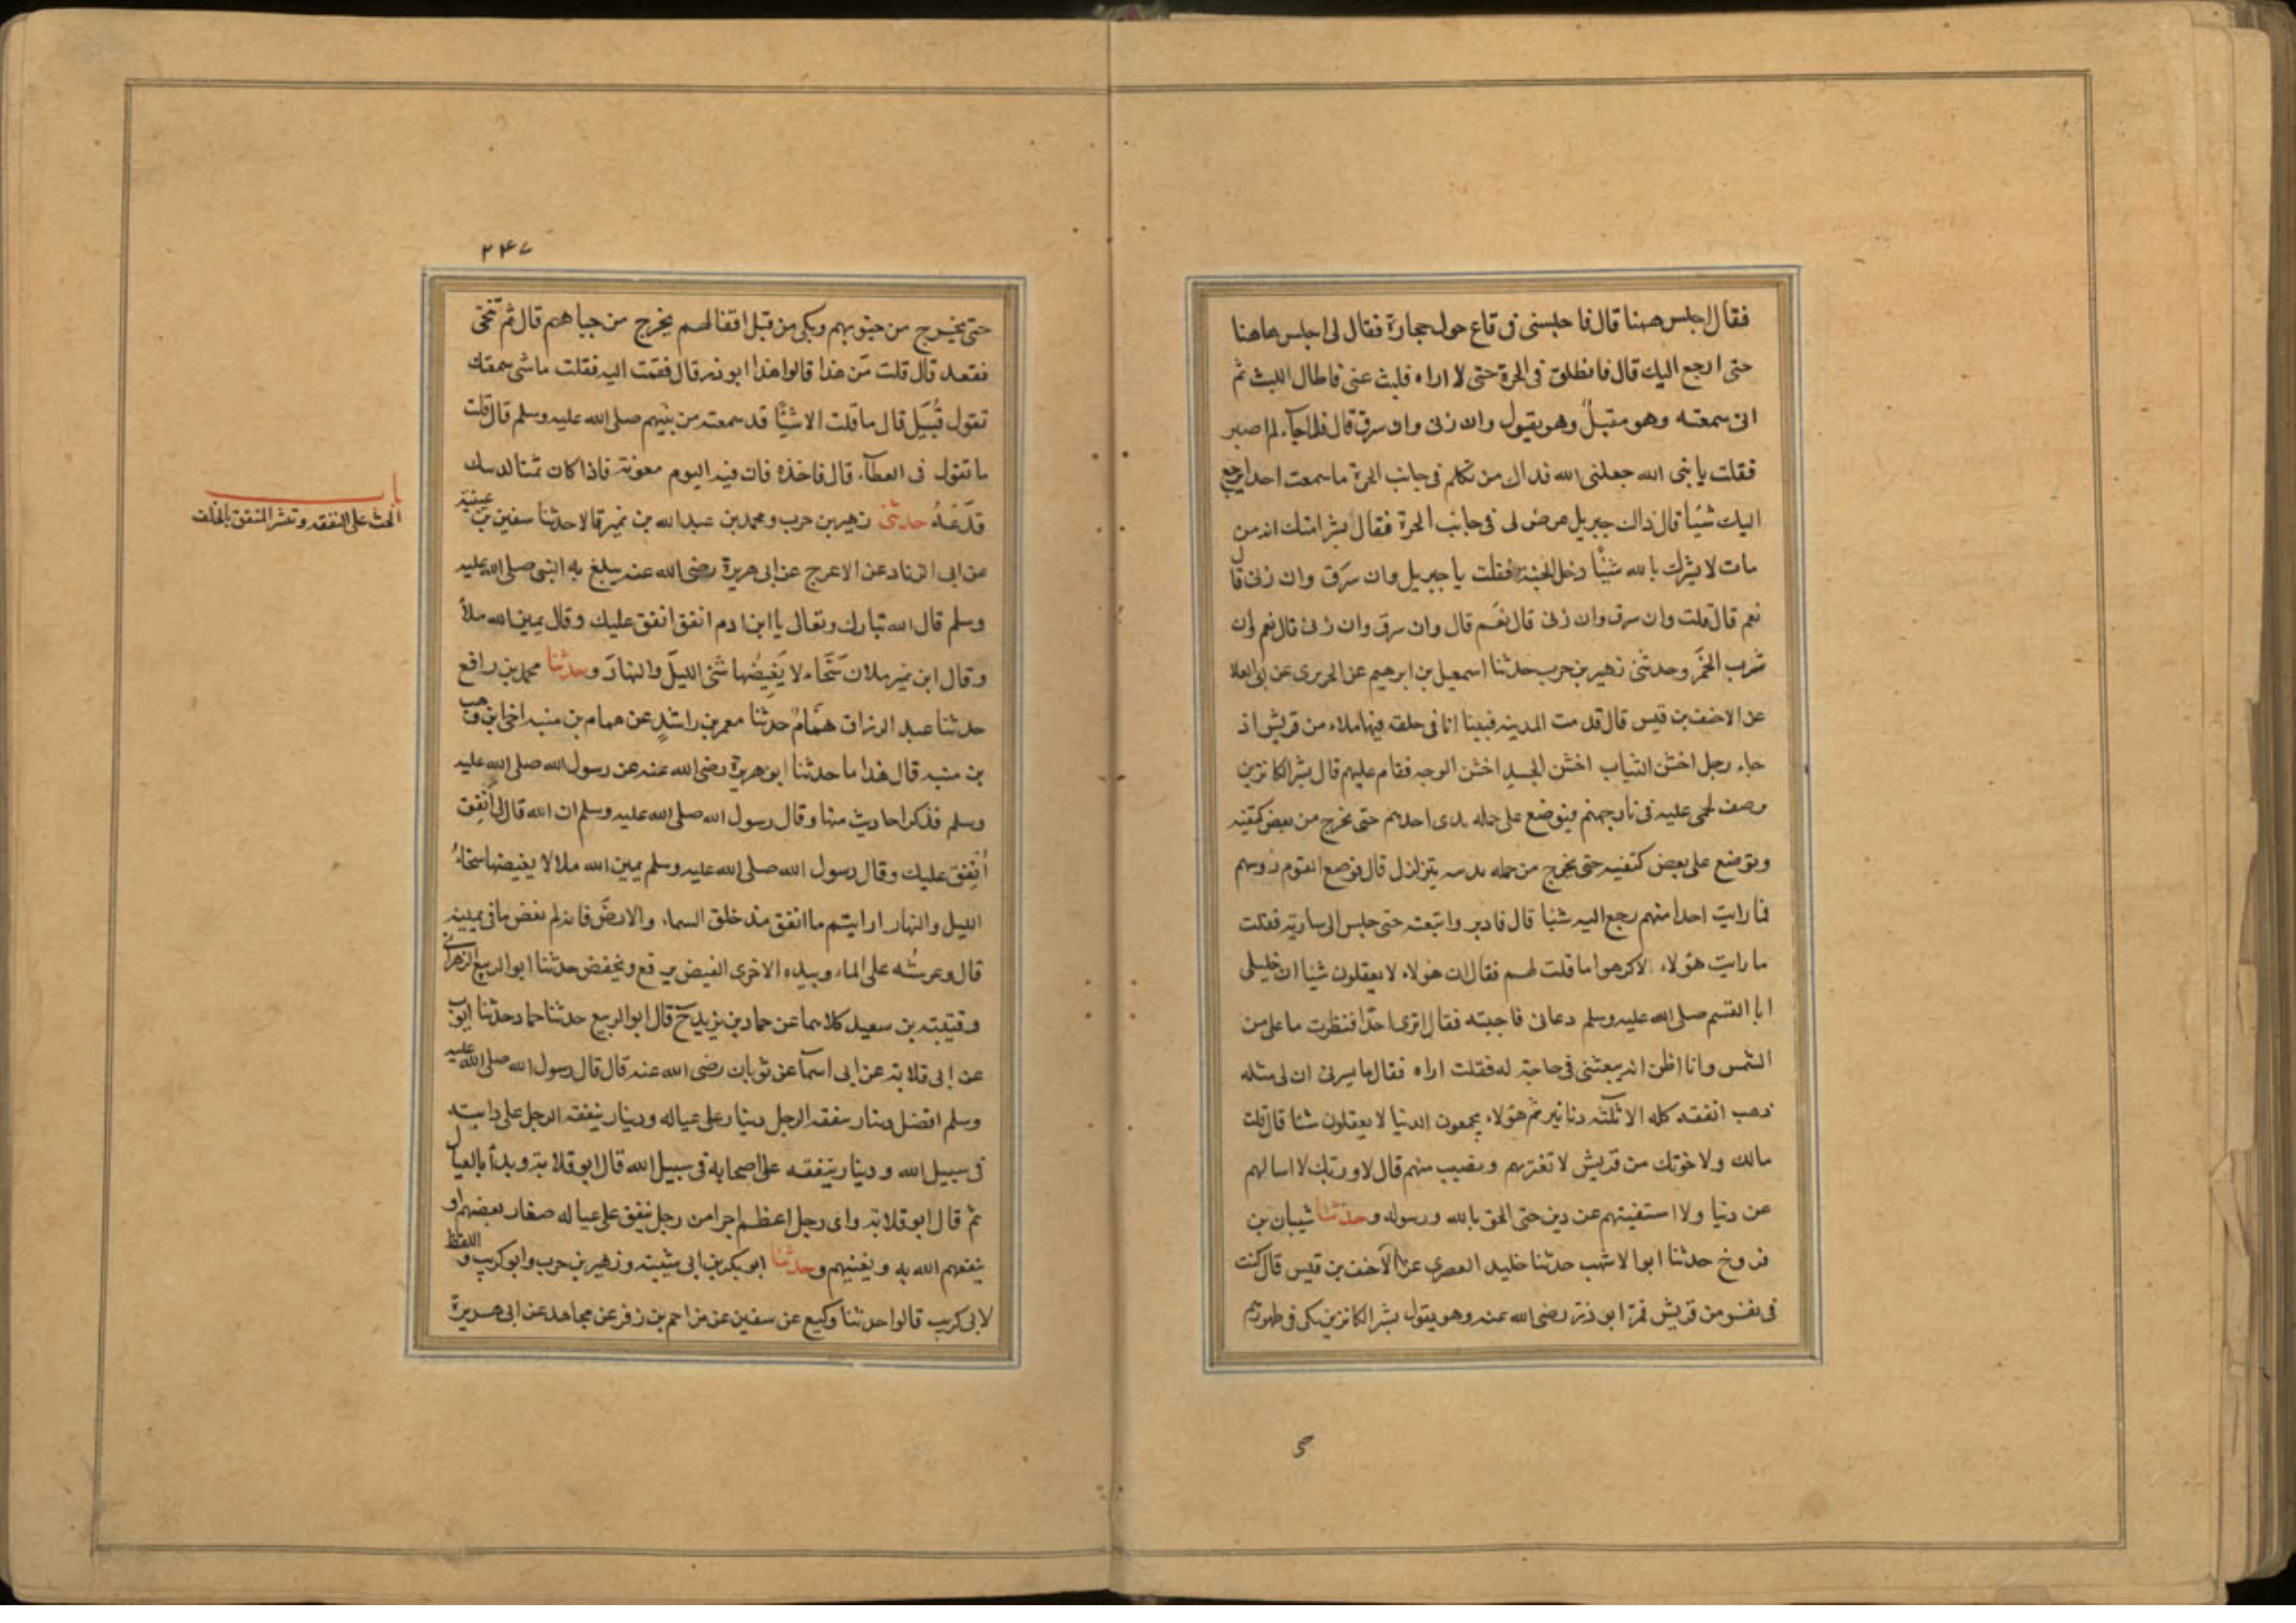 فقال اجلس ههنا قال فاجلسنى فى قاع حوله حجارة فقال لى اجلس هاهنا
حتى ارجع اليك قال فانطلق فى الحرة حتى لا اراه فلبث عنى فاطال اللبث ثم
انى سمعته وهو مقبلٌ وهو يقول وان زنى وان سرق قال فلما جآء لم اصبر
فقلت يا نبى الله جعلنى الله فداك من تكلم فى جانب الحرة ما سمعت احدا يرجع
اليك شيًا قال ذاك جبريل عرض لى فى جانب الحرة فقال بشر امتك انه من
مات لا يشرك بالله شئًا دخل الجنة فقلت يا جبريل وان سرَق وان زنى قال
نعم قال قلت وان سرق وان زنى قال نعَم قال وان سرق وان زنى قال نعم وان
شرب الخمَر وحدثنى زهير بن حرب حدثنا اسمعيل بن ابرهيم عن الجريرى عن ابى العلا
عن الاحنف بن قيس قال قدمت المدينه فبينا انا فى حلقه فيها ملاء من قريش اذ
جاء رجل اخشن الثياب اخشن الجسد اخشن الوجه فقام عليهم قال بشر الكانزين
برصف يحمى عليه فى نار جهنم فيوضع على حلمه ثدى احدهم حتى يخرج من نغض كتفيه
ويوضع على نغض كتفيه حتى يخرج من حلمه ثدييه يتزلزل قال فوضع القوم رؤسهم
فما رايت احدا منهم رجع اليه شيا قال فادبر واتبعته حتى جلس الى سارية فقلت
ما رايت هؤلاء الا كرهوا ما قلت لهم فقال ان هؤلاء لا يعقلون شيا ان خليلى
ابا القسم صلى الله عليه وسلم دعانى فاجبته فقال اترى احدًا فنظرت ما على من
الشمس وانا اظن انه يبعثنى فى حاجة له فقلت اراه فقال ما يسرنى ان لى مثله
ذهب انفقه كله الا ثلثه دنانير ثم هؤلاء يجمعون الدنيا لا يعقلون شئا قال قلت
مالك ولاخوتك من قريش لا تعتريهم وتصيب منهم قال لا وربك لا اسالهم
عن دنيا ولا استفتيهم عن دين حتى الحق بالله ورسوله وحدثنا شيبان بن
فروخ حدثنا ابو الاشهب حدثنا خليد العصرى عن الاحنف بن قيس قال كنت
فى نفر من قريش فمرّ ابو ذر رضى الله عنه وهو يقول بشر الكانزين بكى فى ظهورهم
۲۴۷
حتى يخرج من جنوبهم وبكى من قبل اقفائهم يخرج من جباههم قال ثم تنحّى
فقعد قال قلت مَن هذا قالوا هذا ابو ذر قال فقمت اليه فقلت ما شى سمعتك
تقول قُبَيل قال ما قلت الا شئًا قد سمعته من نبيهم صلى الله عليه وسلم قال قلت
ما تقول فى العطآء قال فاخذه فان فيه اليوم معونة فاذا كان ثمنا لدينك
فدَعهُ حدثنى زهير بن حرب ومحمد بن عبد الله بن نمير قالا حدثنا سفين بن عيينة
عن ابى الزناد عن الاعرج عن ابى هريرة رضى الله عنه يبلغ به النبى صلى الله عليه
وسلم قال الله تبارك وتعالى يا ابن ادم انفق انفق عليك وقال يمين الله ملأ
وقال ابن نمير ملان سَحّاء لا يَغِيضُها شئ الليلَ والنهارَ وحدثنا محمد بن رافع
حدثنا عبد الرزاق همّامٌ حدثنا معمر بن راشدٍ عن همام بن منبه اخى ابن وهب
بن منبه قال هذا ما حدثنا ابو هريرة رضى الله عنه عن رسول الله صلى الله عليه
وسلم فذكر احاديث منها وقال رسول الله صلى الله عليه وسلم ان الله قال لى أنفِق
أُنفِق عليك وقال رسول الله صلى الله عليه وسلم يمين الله ملا لا يغيضها سحاءُ
الليل والنهار ارايتم ما انفق منذ خلق السماء والارض فانه لم يغض ما فى يمينه
قال وعرشُه على الماء وبيده الاخرى الفيض يرفع ويخفض حدثنا ابو الربيع الزهرانى
وقتيبة بن سعيد كلاهما عن حماد بن زيد ح قال ابو الربيع حدثنا حماد حدثنا ايوب
عن ابى قلابة عن ابى اسمآ عن ثوبان رضى الله عنه قال قال رسول الله صلى الله عليه
وسلم افضل دينار ينفقه الرجل دينار على عياله ودينار ينفقه الرجل على دابته
فى سبيل الله ودينار ينفقه على اصحابه فى سبيل الله قال ابو قلابة وبدأ بالعيال
ثم قال ابو قلابة واى رجل اعظم اجرا من رجل ينفق على عياله صغار يعفهم او
ينفعهم الله به ويغنيهم وحدثنا ابو بكر بن ابى شيبة وزهير بن حرب وابو كريب واللفظ
لابى كريب قالوا حدثنا وكيع عن سفين عن مزاحم بن زفر عن مجاهد عن ابى هريرة
باب
الحث على النفقه وتبشر المنفق بالخلف